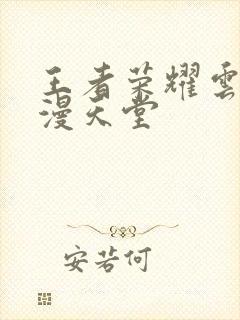 王者荣耀雲
漫天堂
安若何